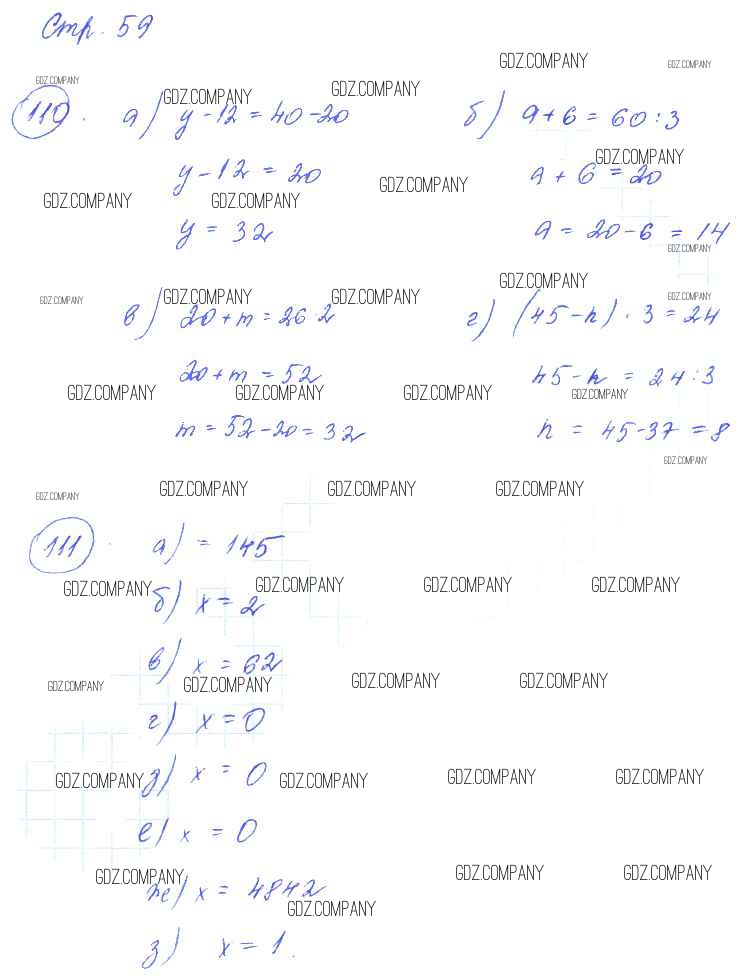 Стр. 59
GDZ.COMPANY GDZ.COMPANY
GDZ.COMPANY GDZ.COMPANY GDZ.COMPANY
110. а) y - 12 = 40 - 20 б) a + 6 = 60 : 3
GDZ.COMPANY
y - 12 = 20 a + 6 = 20
GDZ.COMPANY GDZ.COMPANY GDZ.COMPANY
y = 32 a = 20 - 6 = 14
GDZ.COMPANY
GDZ.COMPANY
GDZ.COMPANY GDZ.COMPANY GDZ.COMPANY GDZ.COMPANY
в) 20 + m = 26 2 г) (45 - n) · 3 = 24
20 + m = 52 45 - n = 24 : 3
GDZ.COMPANY GDZ.COMPANY GDZ.COMPANY GDZ.COMPANY
m = 52 - 20 = 32 n = 45 - 37 = 8
GDZ.COMPANY
GDZ.COMPANY GDZ.COMPANY GDZ.COMPANY GDZ.COMPANY
111. а) = 145
GDZ.COMPANY GDZ.COMPANY GDZ.COMPANY GDZ.COMPANY
б) x = 2
в) x = 62
GDZ.COMPANY GDZ.COMPANY GDZ.COMPANY GDZ.COMPANY
г) x = 0
GDZ.COMPANY GDZ.COMPANY GDZ.COMPANY GDZ.COMPANY
д) x = 0
е) x = 0
GDZ.COMPANY GDZ.COMPANY GDZ.COMPANY
ж) x = 4842
GDZ.COMPANY
з) x = 1.